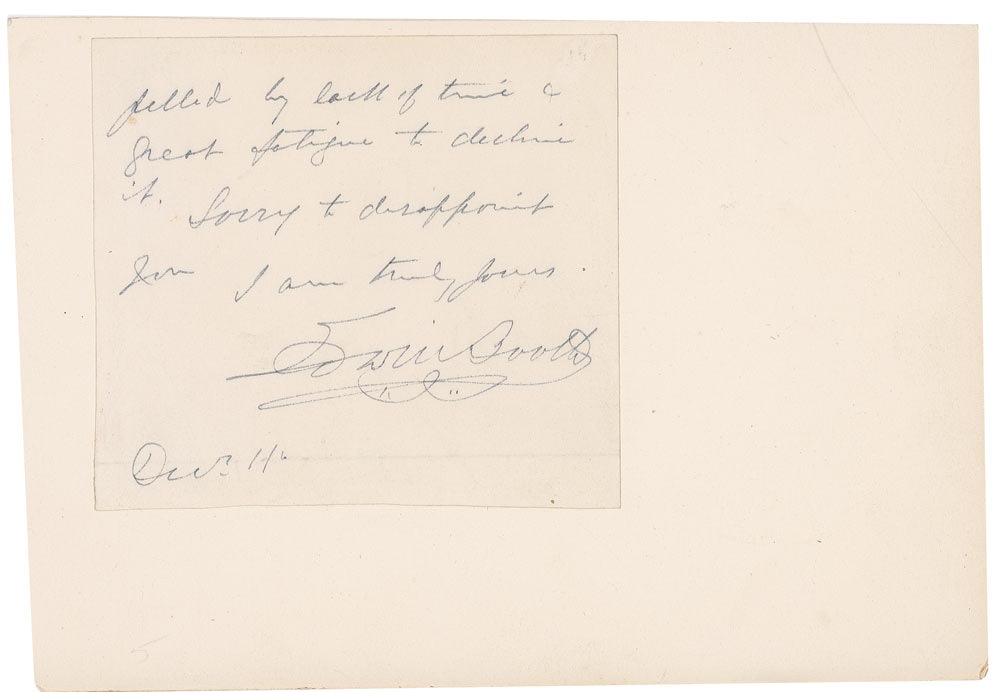 pelled by lack of time &
great fatigue to decline
it. Sorry to disappoint
you I am truly yours.
Edwin Booth